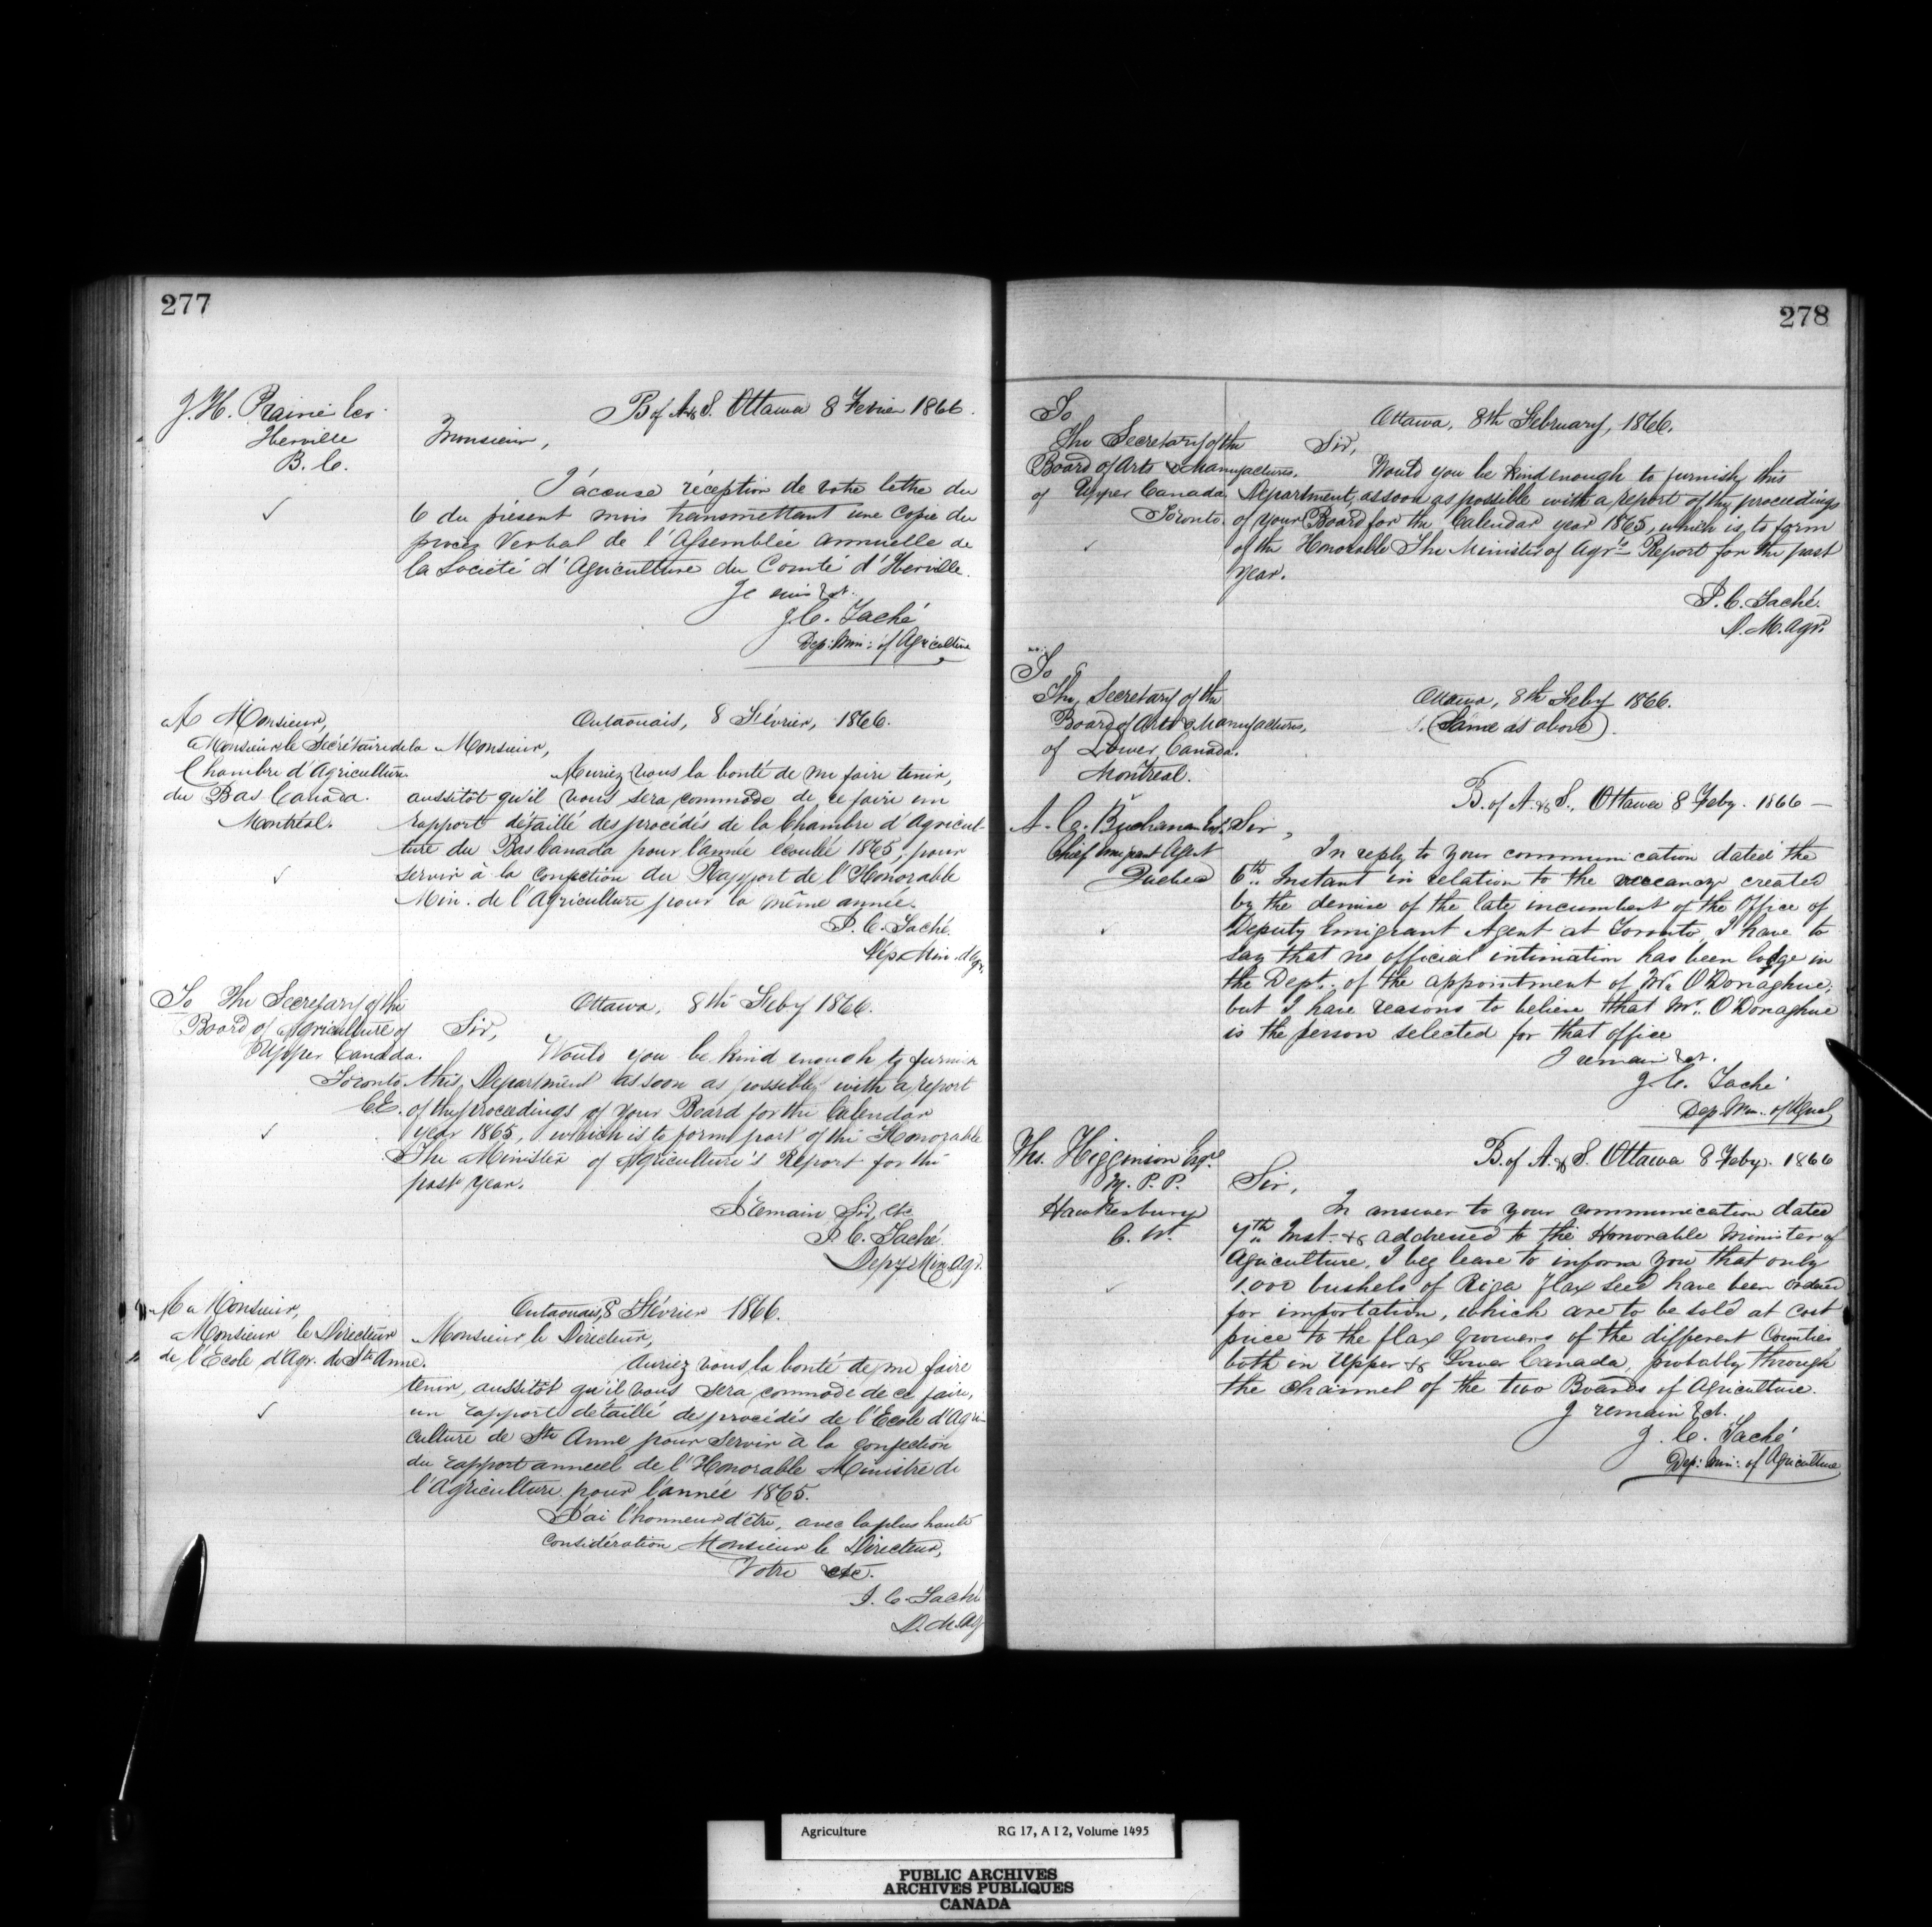 277
J. H. Rainie Cer
Iberville
B. C.
B of A & S. Ottawa 8 Fevrier 1866.
Monsieur,
J'accuse réception de votre lettre du
6 du présent mois transmettant une Copie du
procez Verbal de l'Assemblée annuelle de
la Société d'Agriculture du Comté d'Iberville.
Je suis &ct.
J. C. Taché
Dep: Min: of Agriculture
A Monsieur,
Monsieur le Secrétaire de la
Chambre d'Agriculture
du Bas Canada.
Montréal.
Outaouais, 8 Février, 1866.
Monsieur,
Auriez vous la bonté de me faire tenir,
aussitôt qu'il vous sera commode de ce faire un
rapport détaillé des procédés de la Chambre d'Agricul-
ture du Bas Canada pour l'année écoulée 1865, pour
servir à la confection du Rapport de l'Honorable
Min. de l'Agriculture pour la même année.
J. C. Taché.
Dép. Min. d'Agr.
To The Secretary of the
Board of Agriculture of
Upper Canada.
Toronto.
Ottawa, 8th Feby 1866.
Sir,
Would you be kind enough to furnish
this Department as soon as possible with a report
of the proceedings of your Board for the Calendar
year 1865, which is to form part of the Honorable
The Minister of Agriculture's Report for the
past year.
I remain Sir, etc
J. C. Taché.
Depy Min. Agr.
A Monsieur,
Monsieur le Directeur
de l'Ecole d'Agr. de Ste Anne.
Outaouais, 8 Février 1866.
Monsieur le Directeur,
Auriez vous la bonté de me faire
tenir, aussitôt qu'il vous sera commode de ce faire,
un rapport détaillé des procédés de l'Ecole d'Agri-
culture de Ste Anne pour servir à la confection
du rapport annuel de l'Honorable Ministre de
l'Agriculture pour l'année 1865.
J'ai l'honneur d'être, avec la plus haute
considération Monsieur le Directeur,
Votre etc.
J. C. Taché
D. M. Ag
278
To
The Secretary of the
Board of Arts & Manufactures.
of Upper Canada
Toronto.
Ottawa, 8th February, 1866.
Sir,
Would you be kind enough to furnish this
Department, as soon as possible with a report of the proceedings
of your Board for the Calendar year 1865, which is to form
of the Honorable The Minister of Agr's Report for the past
year.
J. C. Taché.
D. M. Agr.
To
The Secretary of the
Board of Arts & Manufactures,
of Lower Canada.
Montreal.
Ottawa, 8th Feby 1866.
(Same as above).
A. C. Buchanan Esq.
Chief Emigrant Agent
Quebec
B. of A. & S., Ottawa 8 Feby. 1866 —
Sir,
In reply to your communication dated the
6th Instant in relation to the vacancy created
by the demise of the late incumbent of the Office of
Deputy Emigrant Agent at Toronto, I have to
say that no official intimation has been lodge in
the Dept. of the appointment of Mr. O'Donaghue,
but I have reasons to believe that Mr. O'Donaghue
is the person selected for that office
I remain &ct.
J. C. Taché
Dep. Min. of Agricl.
Ths. Higginson Esqre
M. P. P.
Hawkesbury
C. W.
B. of A. & S. Ottawa 8 Feby. 1866
Sir,
In answer to your communication dated
7th Inst. & addressed to the Honorable Minister of
Agriculture, I beg leave to inform you that only
1.000 bushels of Riga flax seed have been ordered
for importation, which are to be sold at cost
price to the flax growers of the different Counties
both in Upper & Lower Canada, probably through
the channel of the two Boards of Agriculture.
I remain &ct.
J. C. Taché
Dep: Min: of Agriculture
Agriculture RG 17, A I 2, Volume 1495
PUBLIC ARCHIVES
ARCHIVES PUBLIQUES
CANADA